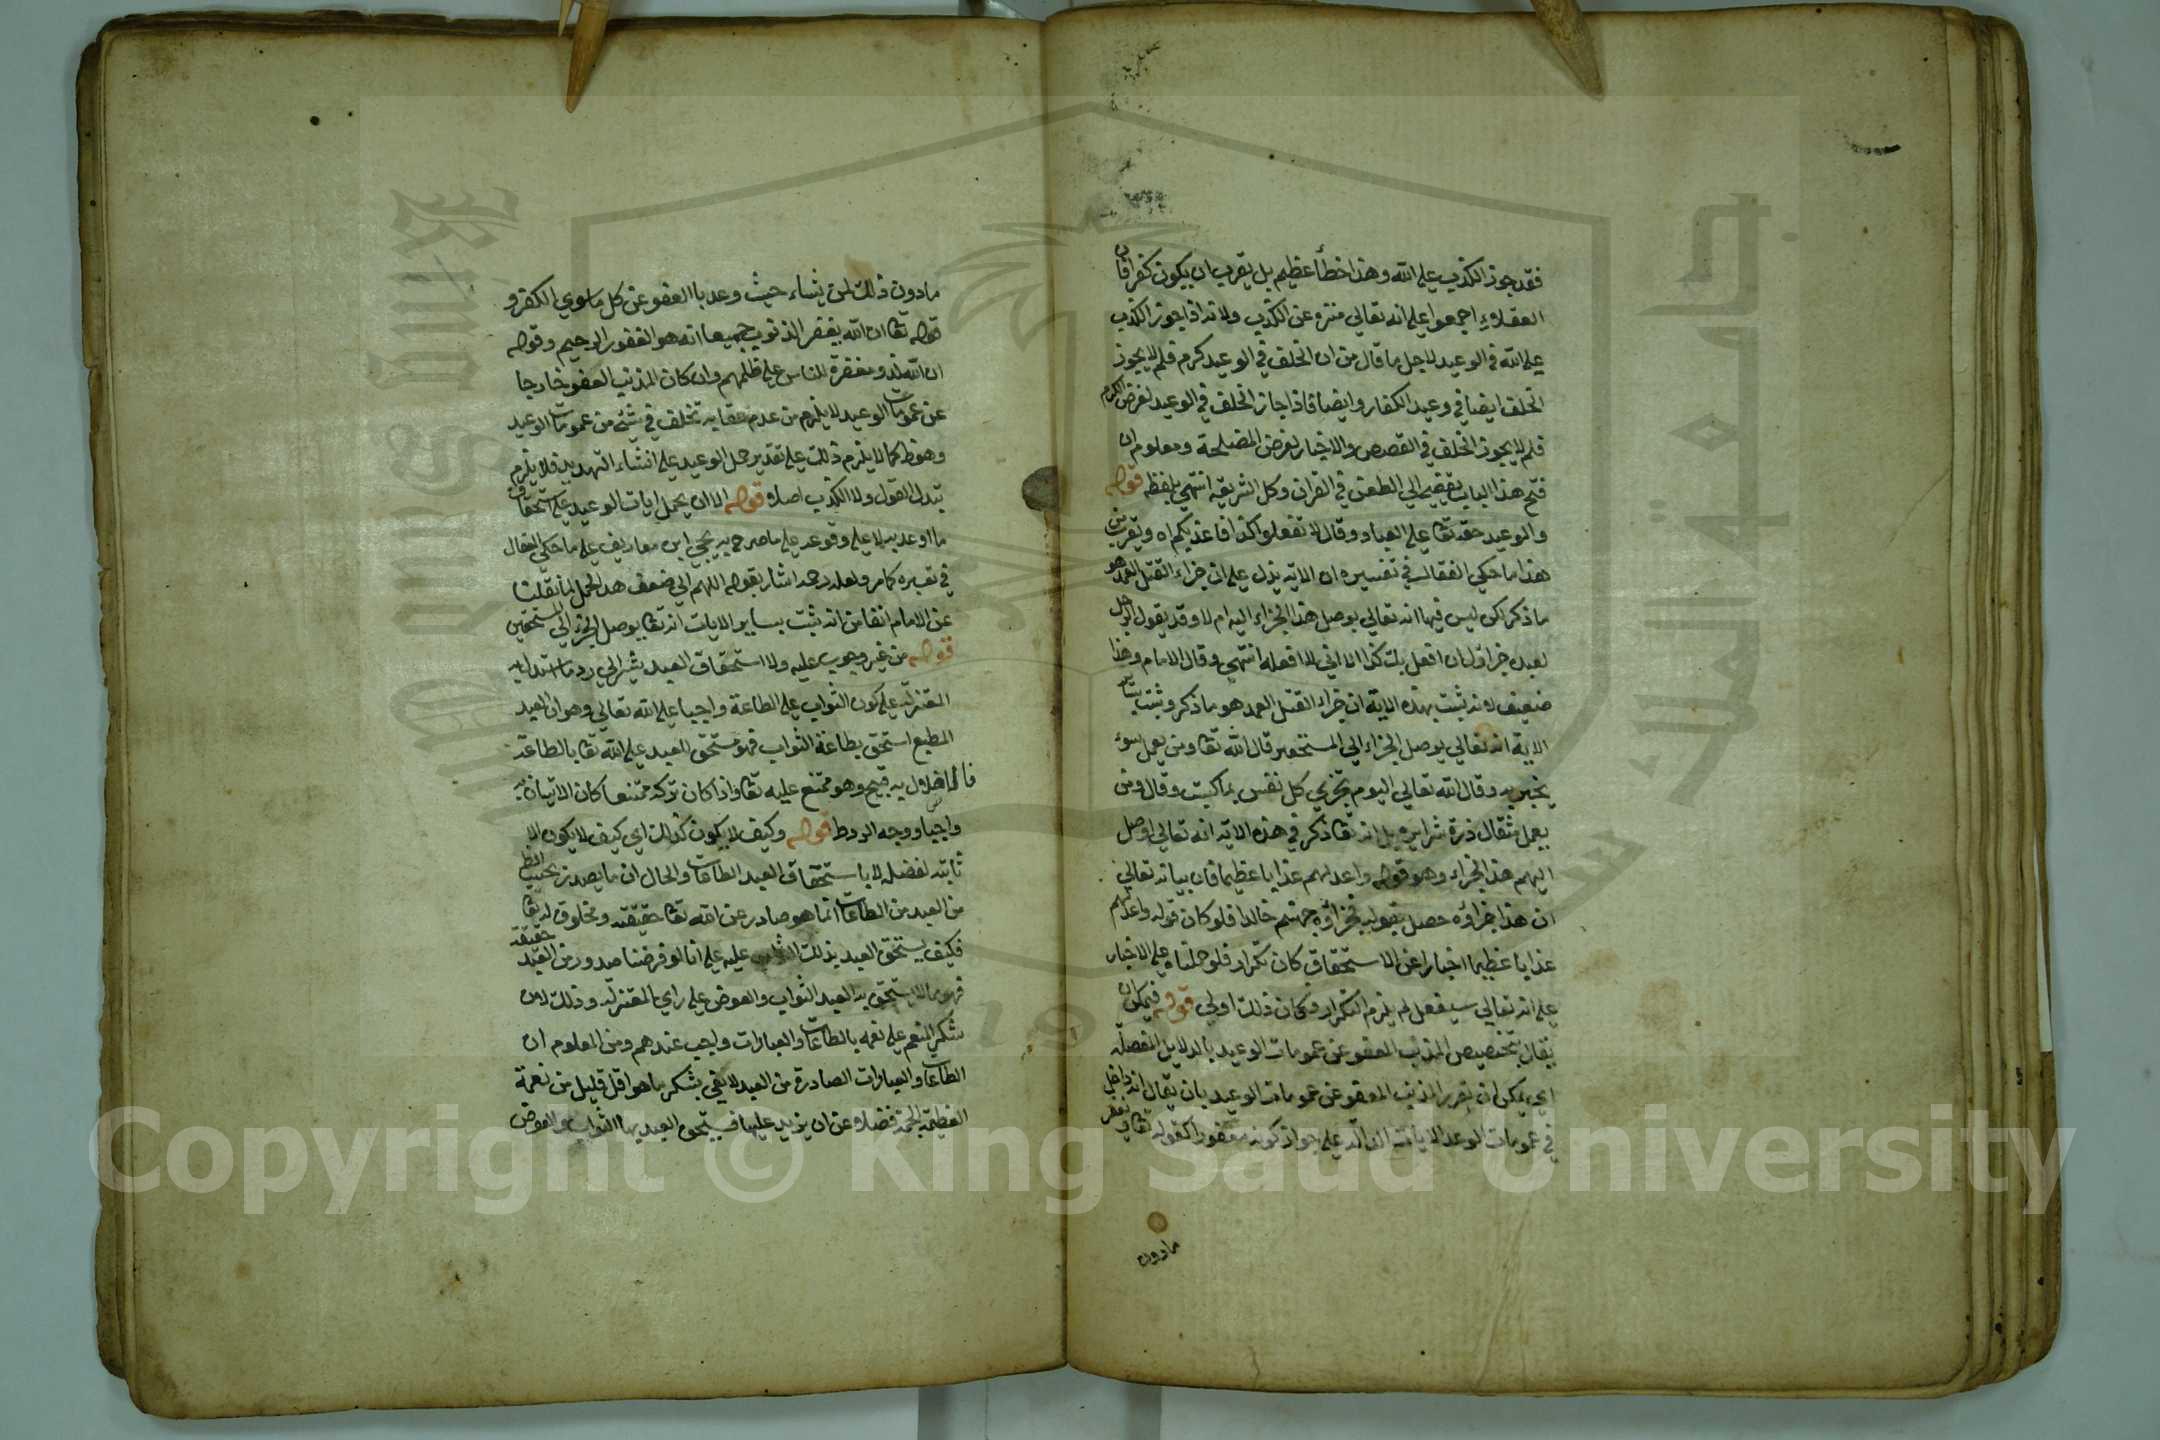 فقد جوز الكذب على الله وهذا خطأ عظيم بل يقرب ان يكون كفرا فان
العقلاء اجمعوا على انه تعالى منزه عن الكذب ولانه اذا جوز الكذب
على الله في الوعيد لاجل ما قال من ان الخلف في الوعيد كرم فلم لا يجوز
الخلف ايضا في وعيد الكفار وايضا فاذا جاز الخلف في الوعيد لغرض الكرم
فلم لا يجوز الخلف في القصص والاخبار لغرض المصلحة ومعلوم ان
فتح هذا الباب يفضي الى الطعن في القران وكل الشريعة انتهى بلفظه قوله
والوعيد حقه تعا على العباد وقال لا تفعلوا كذا فاعذبكم اه ويقرب من
هذا ما حكي القفال في تفسيره ان الاية يدل على ان جزاء القتل العمد هو
ما ذكر لكن ليس فيها انه تعالى يوصل هذا الجزاء اليه ام لا وقد يقول الرجل
لعبده جزاؤك ان افعل بك كذا الا اني لا افعله انتهى وقال الامام وهذا
ضعيف لانه ثبت بهذه الاية ان جزاء القتل العمد هو ما ذكر وثبت بسائر
الاية انه تعالى يوصل الجزاء الى المستحقين قال الله تعا ومن يعمل سوء
يجز به وقال الله تعالى اليوم تجزى كل نفس بما كسبت وقال ومن
يعمل مثقال ذرة شرا يره بل انه تعا ذكر في هذه الاية انه تعالى اوصل
اليهم هذا الجزاء وهو قوله واعد لهم عذابا عظيما فان بيانه تعالى
ان هذا جزاؤه حصل بقوله فجزاؤه جهنم خالدا فلو كان قوله واعد لهم
عذابا عظيما اخبارا عن الاستحقاق كان تكرارا فلو حملناه على الاخبار
على انه تعالى سيفعل لم يلزم التكرار وكان ذلك اولى قوله فيمكن ان
يقال بتخصيص المذنب المعفو عن عمومات الوعيد بالدلايل المفصلة
اي يمكن ان يقرر المذنب المعفو عن عمومات الوعيد بان يقال انه داخل
في عمومات الوعد الايات الدالة على جواز كونه مغفورا كقوله تعا ويغفر
مادون
مادون ذلك لمن يشاء حيث وعد بالعفو عن كل ما سوى الكفر و
قوله تعا ان الله يغفر الذنوب جميعا انه هو الغفور الرحيم وقوله
ان الله لذو مغفرة للناس على ظلمهم وان كان المذنب المعفو خارجا
عن عمومات الوعيد لا يلزم من عدم عقابه تخلف في شئ من عمومات الوعيد
وهو ظ كما لا يلزم ذلك على تقدير حمل الوعيد على انشاء التهديد فلا يلزم
تبدل القول ولا الكذب اصلا قوله الا ان يحمل ايات الوعيد على استحقاق
ما اوعد به لا على وقوعه على ما صرح به يحيى ابن معاد على ما حكي القفال
في تفسيره كما مر ولعله رحمه اشار بقوله اللهم الى ضعف هذا الحمل لما نقلنا
عن الامام انفا من انه ثبت بساير الايات انه تعا يوصل الجزاء الى المستحقين
قوله من غير وجوب عليه ولا استحقاق العبد يشير الى رد ما استدل به
المعتزلة على كون الثواب على الطاعة واجبا على الله تعالى وهو ان العبد
المطيع استحق بطاعة الثواب فهو مستحق للعبد على الله تعا بالطاعة
فالاخلال به قبيح وهو ممتنع عليه تعا واذا كان تركه ممتنعا كان الاتيان به
واجبا ووجه الرد ظ قوله وكيف لا يكون كذلك اي كيف لا يكون الا
ثابته لفضله لا باستحقاق العبد الطاعات والحال ان ما يصدر بحسب الظ
من العبد من الطاعات انما هو صادر عن الله تعا حقيقة ومخلوق له تعا
فكيف يستحق العبد بذلك الثواب عليه على انا لو فرضنا صدور من العبد حقيقة
فهو مما لا يستحق به العبد الثواب والعوض على راي المعتزلة وذلك لان
شكر المنعم على نعمه بالطاعات والعبادات واجب عندهم ومن المعلوم ان
الطاعات والعبادات الصادرة من العبد لا يفي بشكر ما هو اقل قليل من نعمة
العظيمة الجمة فضلا عن ان يزيد عليها فيستحق العبد بها الثواب والعوض